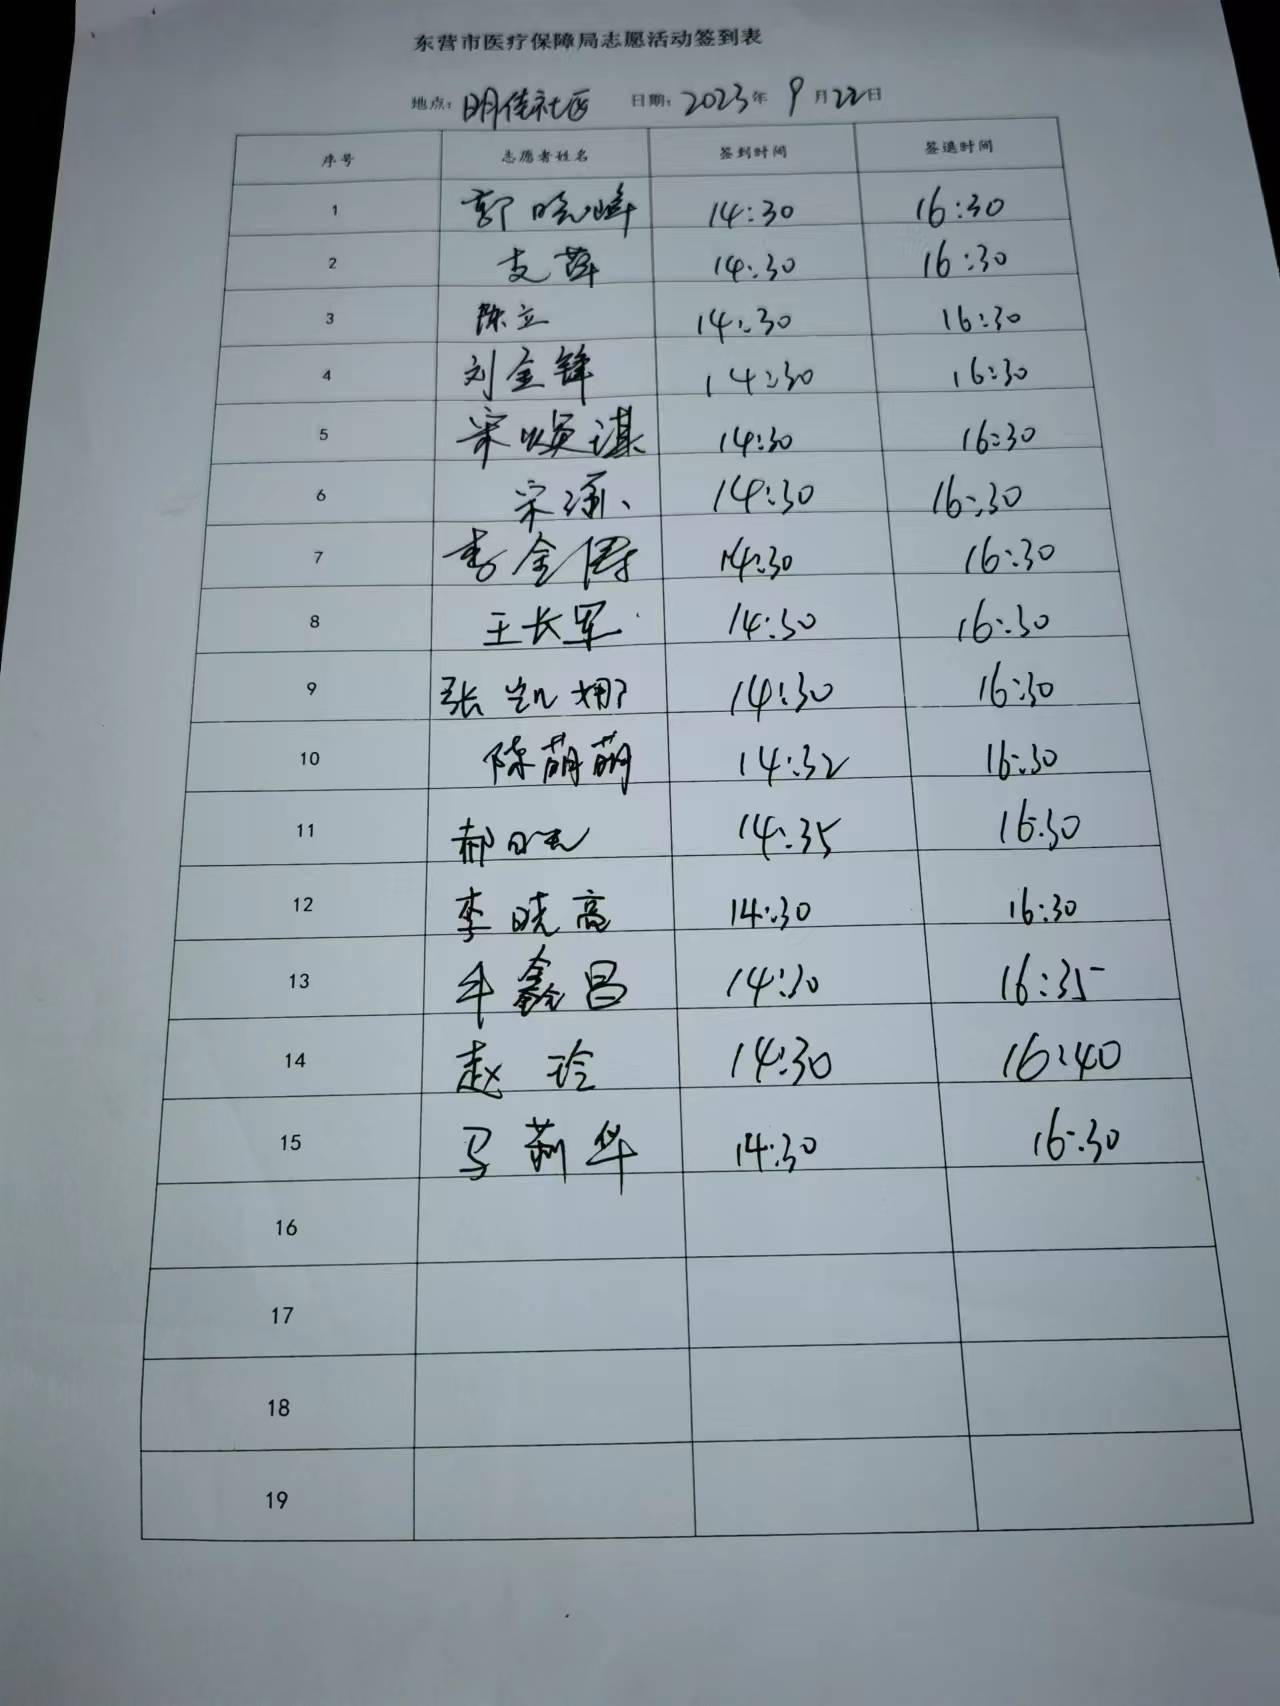 东营市医疗保障局志愿活动签到表
地点：明佳社区 日期：2023年9月22日
序号 志愿者姓名 签到时间 签退时间
1 郭晓峰 14:30 16:30
2 支萍 14:30 16:30
3 陈立 14:30 16:30
4 刘金锋 14:30 16:30
5 宋焕谋 14:30 16:30
6 宋 14:30 16:30
7 李金 14:30 16:30
8 王长军 14:30 16:30
9 张凯娜 14:30 16:30
10 陈萌萌 14:32 16:30
11 郝 14:35 16:30
12 李晓亮 14:30 16:30
13 牛鑫昌 14:30 16:35
14 赵玲 14:30 16:40
15 马莉华 14:30 16:30
16
17
18
19